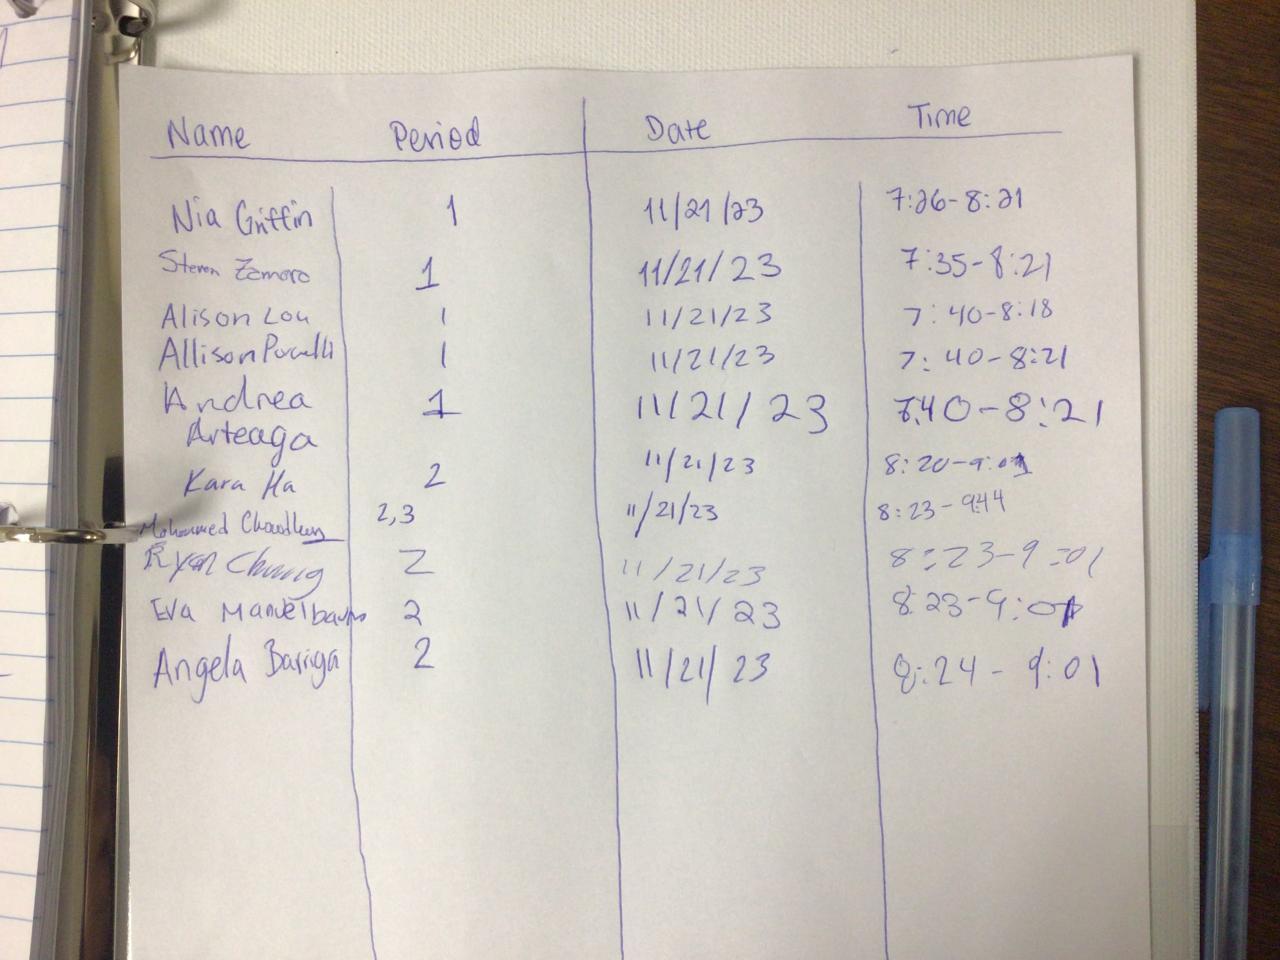 Name Period Date Time
Nia Griffin 1 11/21/23 7:26-8:21
Steven Zamora 1 11/21/23 7:35-8:21
Alison Lou 1 11/21/23 7:40-8:18
Allison 1 11/21/23 7:40-8:21
Andrea 1 11/21/23 7:40-8:21
Arteaga
Kara Ha 2 11/21/23 8:20-9:01
Mohammed Chowdhury 2,3 11/21/23 8:23-9:44
Ryan Chung 2 11/21/23 8:23-9:01
Eva Mandelbaum 2 11/21/23 8:23-9:01
Angela Bariga 2 11/21/23 8:24-9:01